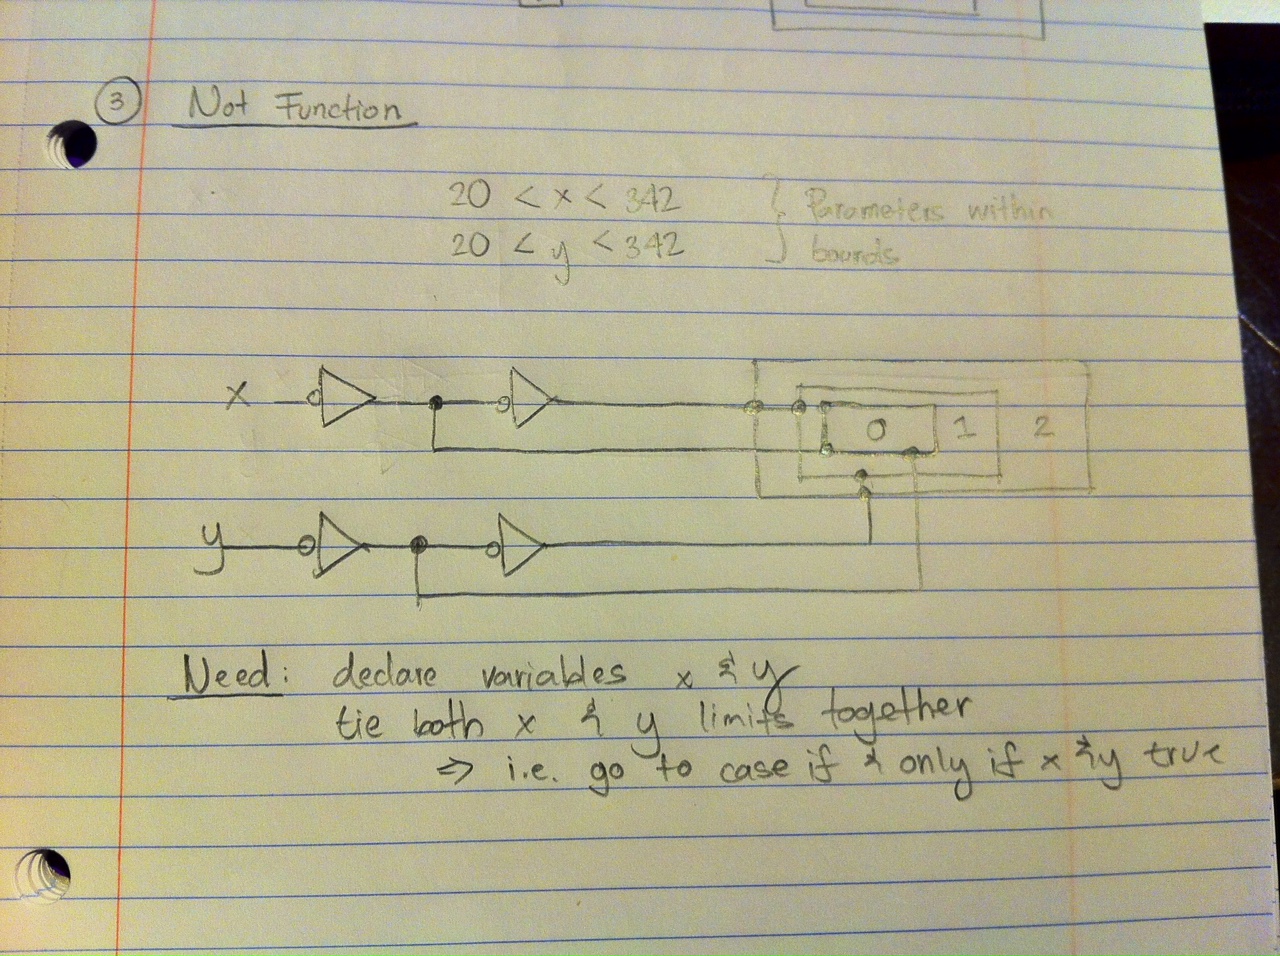 3 Not Function
20 < x < 342 } Parameters within
20 < y < 342 bounds
x
0 1 2
y
Need: declare variables x & y
tie both x & y limits together
⇒ i.e. go to case if & only if x & y true